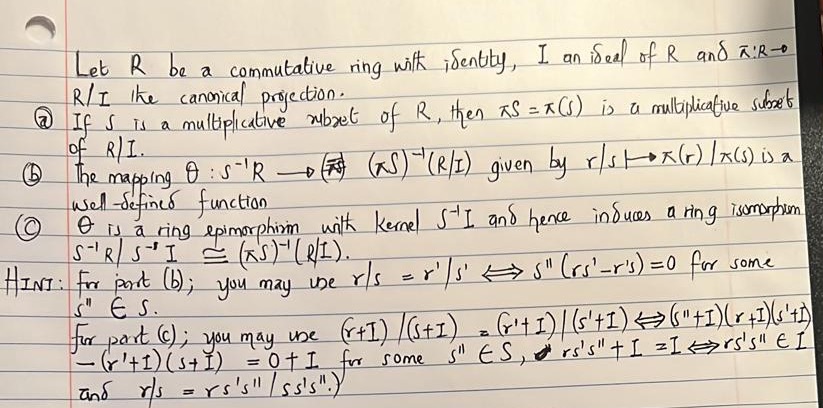 Let R be a commutative ring with identity, I an ideal of R and π:R→
R/I the canonical projection.
ⓐ If S is a multiplicative subset of R, then πS = π(S) is a multiplicative subset
of R/I.
ⓑ The mapping θ : S⁻¹R → (πS)⁻¹(R/I) given by r/s ↦ π(r)/π(s) is a
well-defined function
ⓒ θ is a ring epimorphism with kernel S⁻¹I and hence induces a ring isomorphism
S⁻¹R/S⁻¹I ≅ (πS)⁻¹(R/I).
HINT: For part (b); you may use r/s = r'/s' ⟺ s''(rs'-r's) = 0 for some
s'' ∈ S.
For part (c); you may use (r+I)/(s+I) = (r'+I)/(s'+I) ⟺ (s''+I)(r+I)(s'+I)
- (r'+I)(s+I) = 0+I for some s'' ∈ S, rs's''+I = I ⟺ rs's'' ∈ I
and r/s = rs's''/ss's''.)